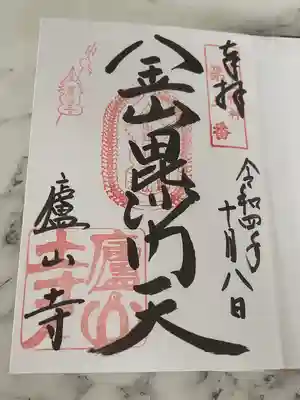 奉拝
令和四年
十月八日
金山毘沙門天
廬山寺